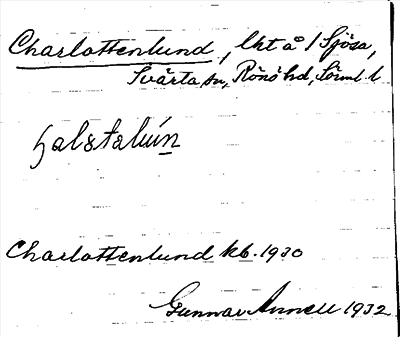 Charlottenlund, lht å 1 Sjösa,
Svärta sn, Rönö hd, Söml. l
Charlottenlund kb. 1930
Gunnar Annell 1932